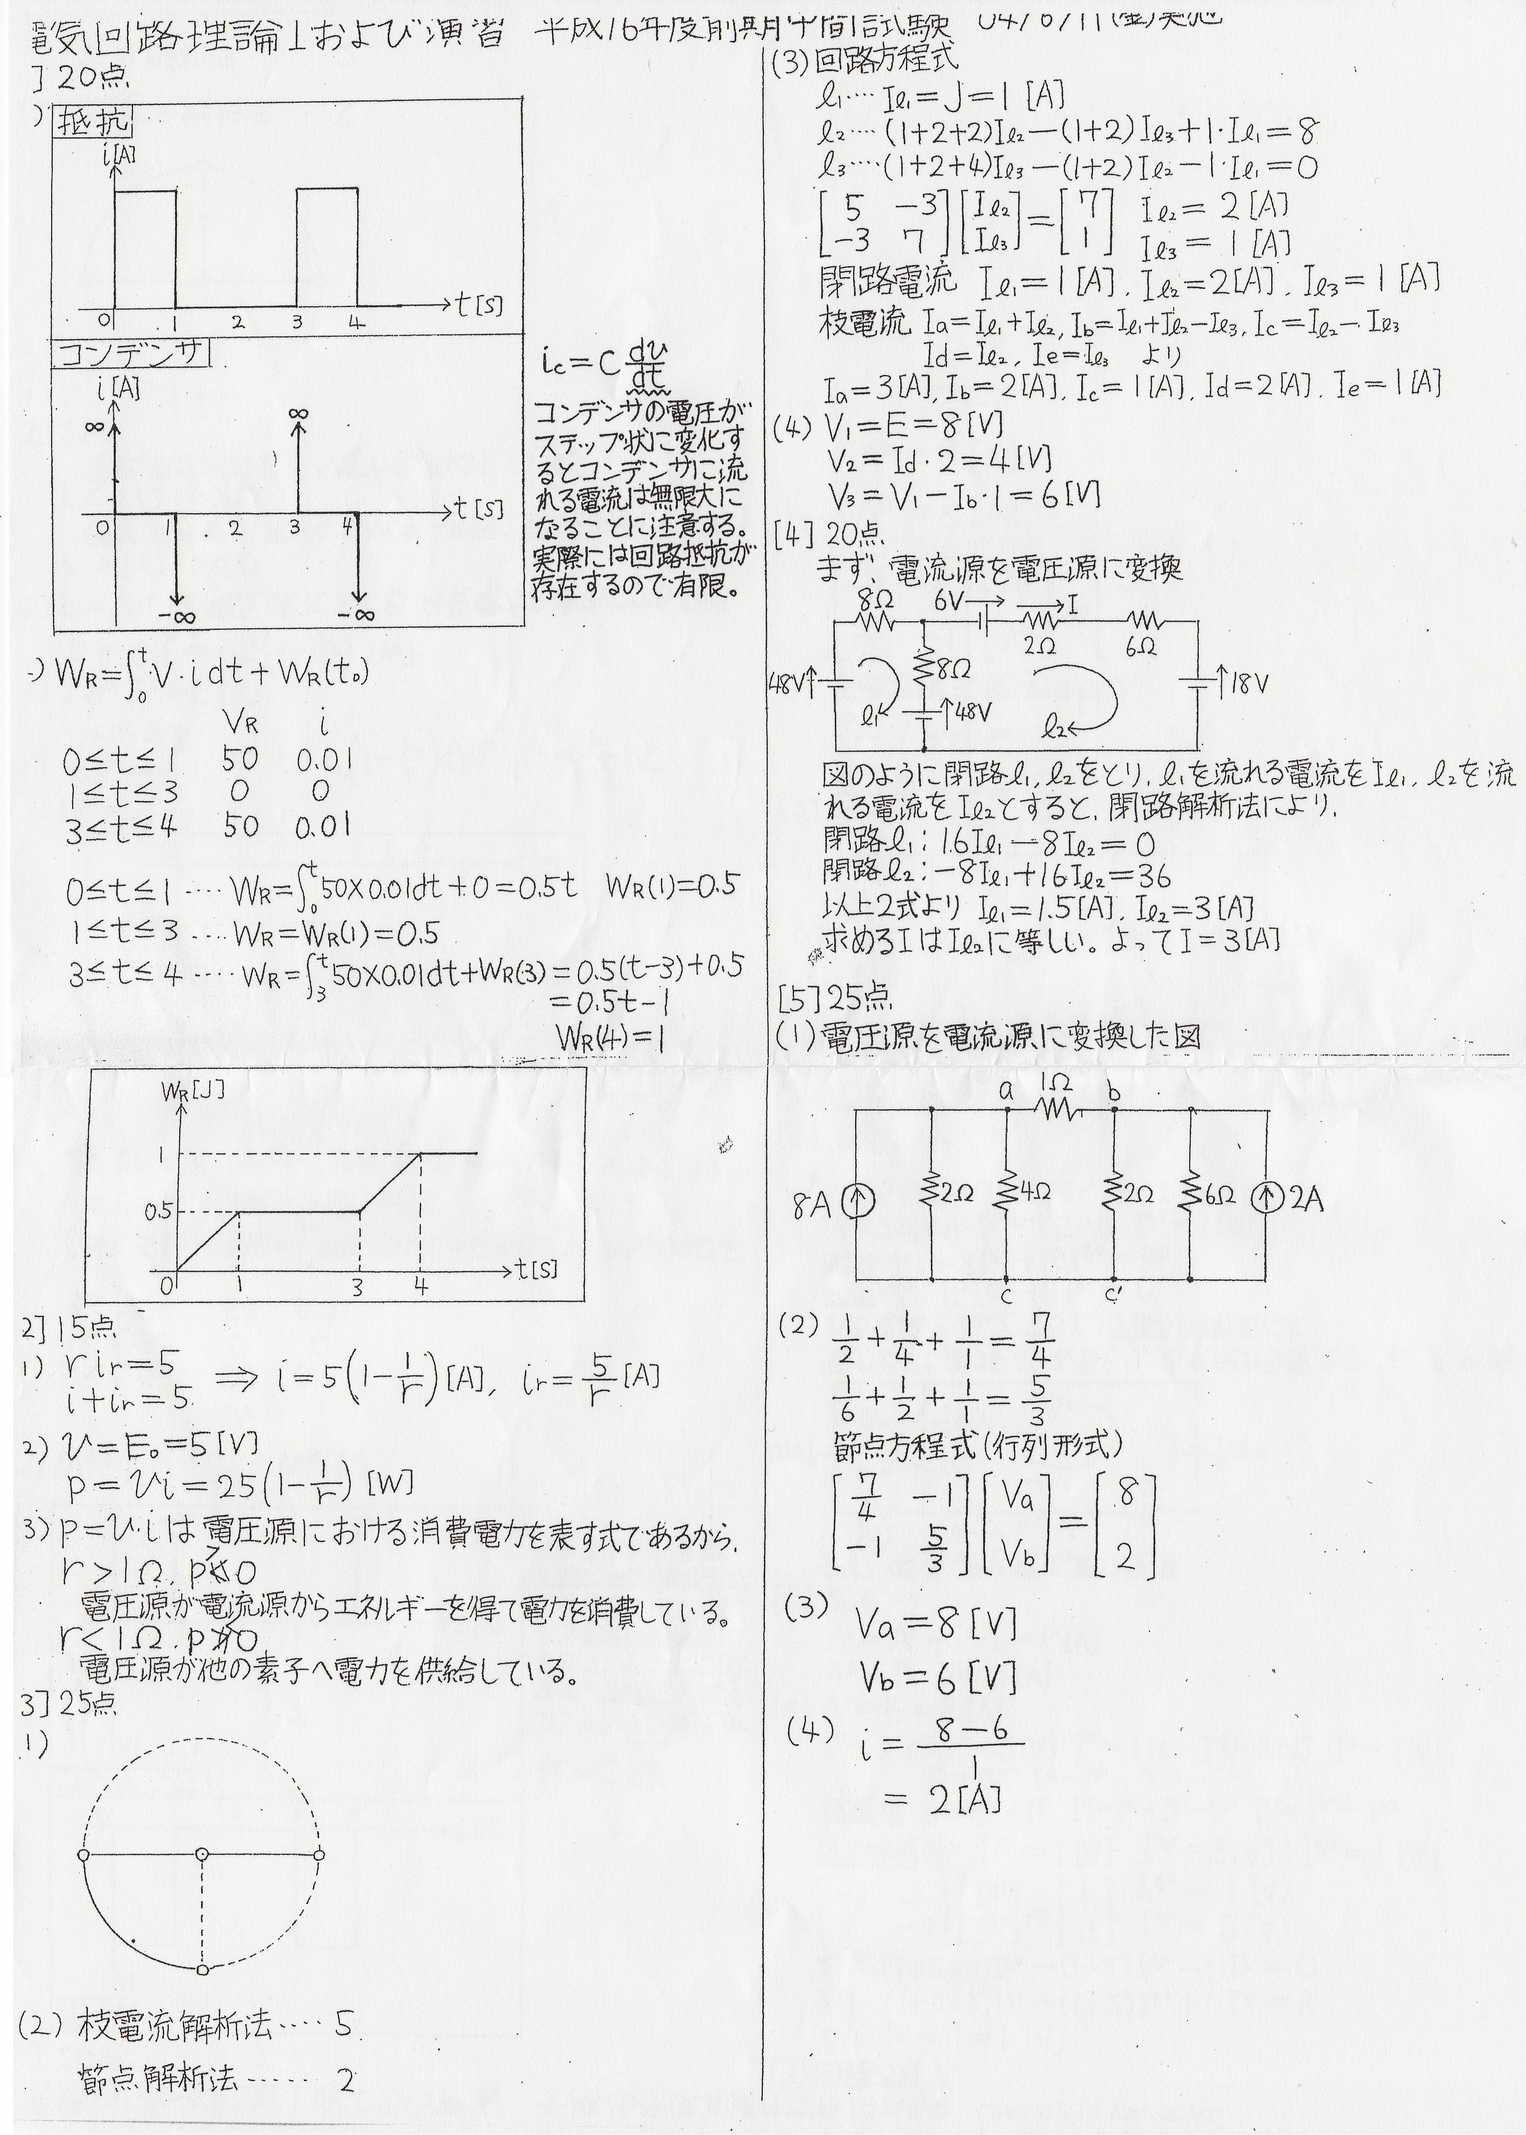 電気回路理論Iおよび演習 平成16年度前期中間試験 04/6/11(金)実施
]20点
)抵抗
i[A]
0 1 2 3 4 t[s]
コンデンサ
i[A]
∞ ∞
0 1 2 3 4 t[s]
-∞ -∞
ic=C dv/dt
コンデンサの電圧が
ステップ状に変化す
るとコンデンサに流
れる電流は無限大に
なることに注意する。
実際には回路抵抗が
存在するので有限。
)WR=∫₀ᵗV・idt+WR(t₀)
VR i
0≤t≤1 50 0.01
1≤t≤3 0 0
3≤t≤4 50 0.01
0≤t≤1 ····WR=∫₀ᵗ50×0.01dt+0=0.5t WR(1)=0.5
1≤t≤3 ····WR=WR(1)=0.5
3≤t≤4 ····WR=∫₃ᵗ50×0.01dt+WR(3)=0.5(t-3)+0.5
=0.5t-1
WR(4)=1
WR[J]
1
0.5
0 1 3 4 t[s]
2]15点
1) r ir=5
i+ir=5
⇒ i=5(1-1/r)[A], ir=5/r[A]
2) v=E₀=5[V]
p=vi=25(1-1/r)[W]
3) p=v・iは電圧源における消費電力を表す式であるから、
r>1Ω, p>0
電圧源が電流源からエネルギーを得て電力を消費している。
r<1Ω, p<0
電圧源が他の素子へ電力を供給している。
3]25点
1)
(2) 枝電流解析法···· 5
節点解析法······ 2
(3)回路方程式
ℓ₁···· Iℓ₁=J=1[A]
ℓ₂···· (1+2+2)Iℓ₂-(1+2)Iℓ₃+1・Iℓ₁=8
ℓ₃···· (1+2+4)Iℓ₃-(1+2)Iℓ₂-1・Iℓ₁=0
[5 -3][Iℓ₂]=[7] Iℓ₂=2[A]
[-3 7][Iℓ₃] [1] Iℓ₃=1[A]
閉路電流 Iℓ₁=1[A], Iℓ₂=2[A], Iℓ₃=1[A]
枝電流 Ia=Iℓ₁+Iℓ₂, Ib=Iℓ₁+Iℓ₂-Iℓ₃, Ic=Iℓ₂-Iℓ₃
Id=Iℓ₂, Ie=Iℓ₃ より
Ia=3[A], Ib=2[A], Ic=1[A], Id=2[A], Ie=1[A]
(4) V₁=E=8[V]
V₂=Id・2=4[V]
V₃=V₁-Ib・1=6[V]
[4]20点
まず、電流源を電圧源に変換
8Ω 6V I
2Ω 6Ω
48V 8Ω 18V
ℓ₁ 48V ℓ₂
図のように閉路ℓ₁,ℓ₂をとり、ℓ₁を流れる電流をIℓ₁, ℓ₂を流
れる電流をIℓ₂とすると、閉路解析法により、
閉路ℓ₁:16Iℓ₁-8Iℓ₂=0
閉路ℓ₂:-8Iℓ₁+16Iℓ₂=36
以上2式より Iℓ₁=1.5[A], Iℓ₂=3[A]
求めるIはIℓ₂に等しい。よってI=3[A]
[5]25点
(1)電圧源を電流源に変換した図
a 1Ω b
8A 2Ω 4Ω 2Ω 6Ω 2A
c c'
(2) 1/2+1/4+1/1=7/4
1/6+1/2+1/1=5/3
節点方程式(行列形式)
[7/4 -1][Va]=[8]
[-1 5/3][Vb] [2]
(3) Va=8[V]
Vb=6[V]
(4) i=(8-6)/1
=2[A]